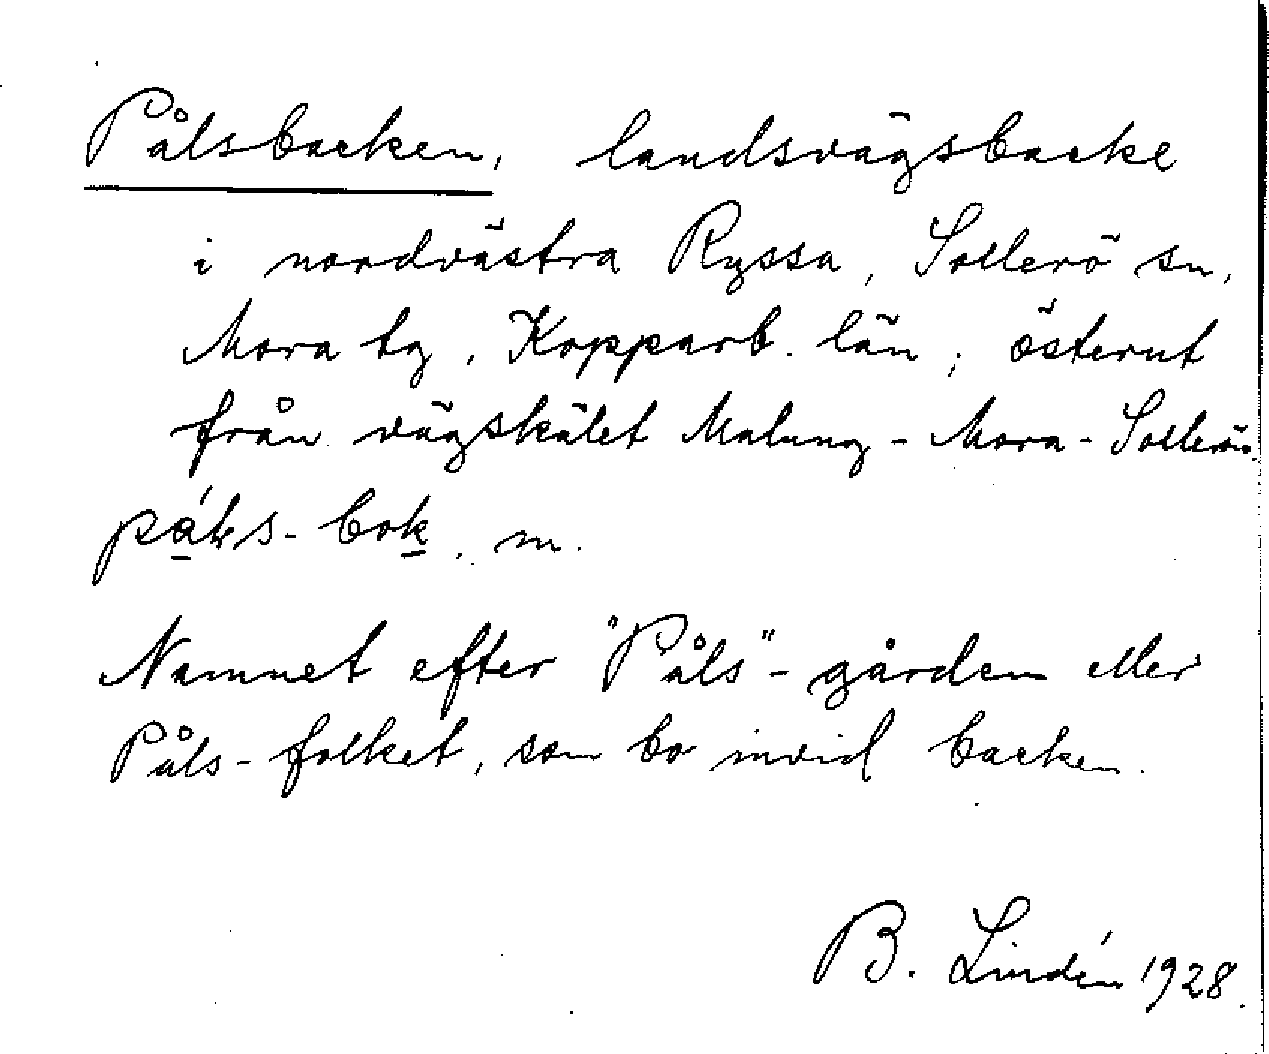 Pålsbacken, landsvägsbacke
i nordvästra Ryssa, Sollerö sn,
Mora tg, Kopparb. län; österut
från vägskälet Malung - Mora - Sollerön.
bok, m.
Namnet efter "Påls"-gården eller
Påls-folket, som bo invid backen.
B. Lindén 1928.